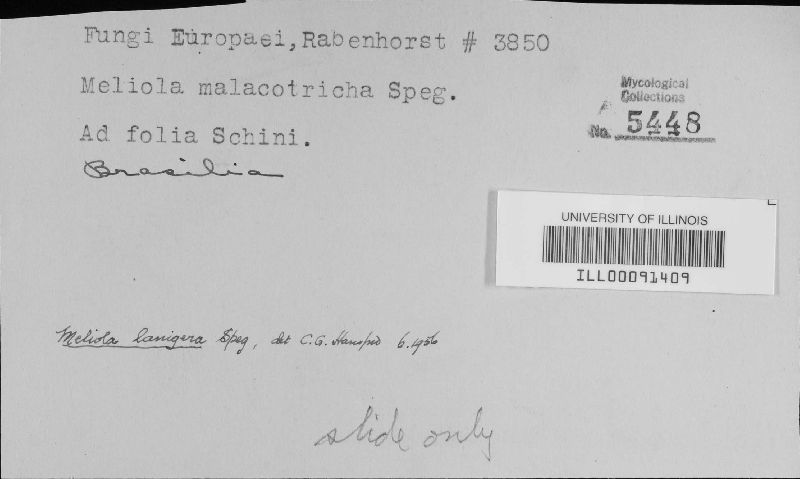 Fungi Europaei, Rabenhorst # 3850
Meliola malacotricha Speg.
Ad folia Schini.
Brasilia
Mycological
Collections
No. 5448
UNIVERSITY OF ILLINOIS
ILL00091409
Meliola lanigera Speg, det C.G. 6.1956
slide only